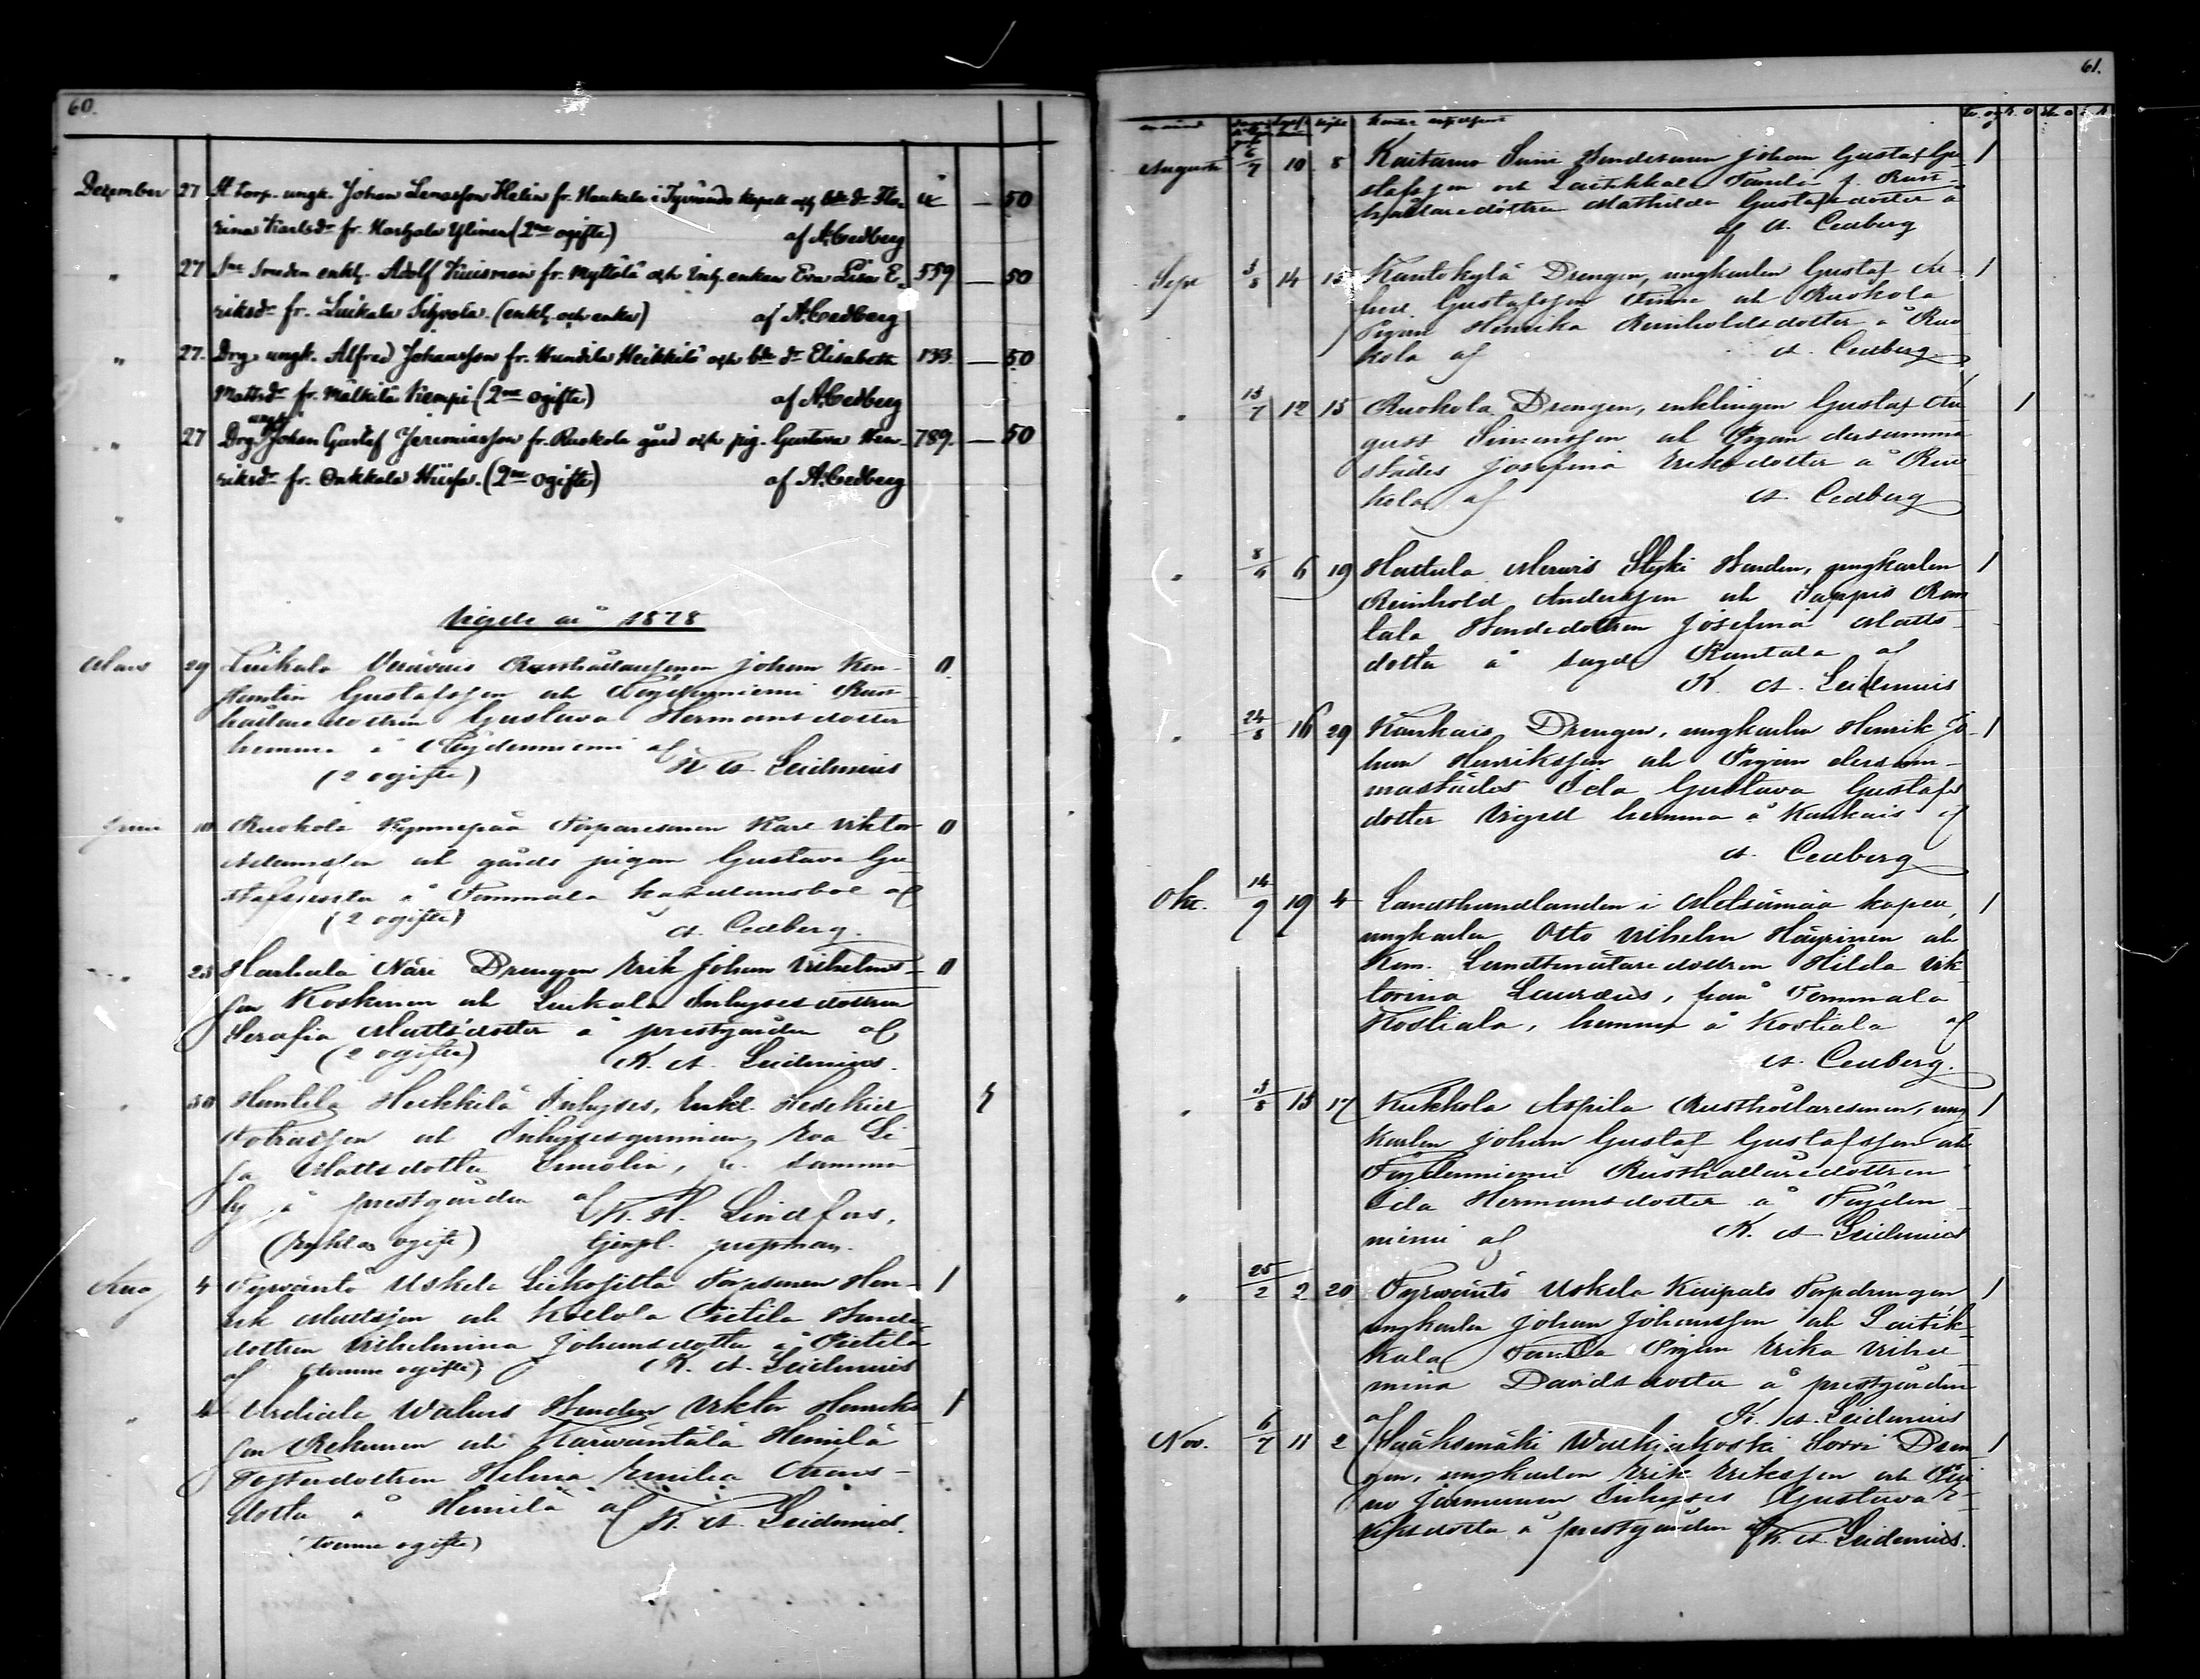 60.
Dezember 27 St. torp. ungk. Johan Lenasson Helin fr. Haukala i Tyrvändö kapell och bde dr Hen-
rina Karlsdr fr. Harhala Ylinen (2ne ogifte) af A. Cedberg
" 27 Sne Smeden enkl. Adolf Kuisman fr. Myttälä och Inh. enkan Eva Lisa E- 559 — 50
riksdr fr. Luikala Sipola. (enkl. och enka) af A. Cedberg
" 27. Drg. ungk. Alfred Johansson fr. Hundila Heikkilä och bde dr Elisabeth 133. — 50
Mattsdr fr. Mälkilä Kempi (2ne ogifte) af A. Cedberg
" 27 Drg. ungk. Johan Gustaf Jeremiasson fr. Ruokola gård och pig. Gustava Hen- 789. — 50
riksdr fr. Onkkala (2ne ogifte) af A. Cedberg
"
Vigde år 1878
Mars 29 Luikala Rusthållaresonen Johan Kon-
stantin Gustafsson och Rust-
hållaredottren Gustava Hermansdotter
hemma å af
(2 ogifte) K A Leidenius
Juni 10 Ruokola Kynnepää Torparesonen Karl Viktor 0
Adamsson och gårds pigan Gustava Gu-
stafsdotter å Tommola kaptensbol af
(2 ogifte) A. Cedberg.
" 23 Harhala Näri Drengen Erik Johan Vilhelms- 0
son Koskinen och Luikala Inhysesdottren
Serafia Mattsdotter å prestgården af
(2 ogifte) K. A. Leidenius.
" 30 Huntila Heikkilä Inhyses, Enkl. Hesekiel
Tobiasson och Inhysesqvinnan Eva Li-
sa Mattsdotter, fr. samma
by å prestgården af K. H. Lindfors,
(Enkl. o. ogift) tjenstf. prestman.
Aug 4 Tyrväntö Uskila Torpsonen Hen- 1
rik Mattsson och Kollola Pietilä Bonde
dottren Vilhelmina Johansdotter å Pietilä
af (tvenne ogifte) K. A. Leidenius
" 4 Urdiala Bonden Viktor Henriks 1
son Rekunen och Karwantälä Heinilä
Testerdottren Helena Emilia
dotter å Heinilä af K. A. Leidenius.
(tvenne ogifte)
61.
Augusti 6/7 10 8 Kaitamo Simi Bondesonen Johan Gustaf Gu- 1
stafsson och Laitikkala Rust-
hållaredottren Mathilda Gustafsdotter å
af A. Cedberg
Sept 3/8 14 15 Kantokylä Drengen, ungkarlen Gustaf Al- 1
fred Gustafsson och Ruokola
Pigan Henrika Reinholdsdotter å Ruo
kola af A. Cedberg
" 13/7 12 15 Ruokola Drengen, enklingen Gustaf Au 1
gust Simonsson och Pigan dersamma
städes Josefina Eriksdotter å Ruo
kola af A. Cedberg
" 8/6 6 19 Hattula Merwis Slyki Bonden, ungkarlen 1
Reinhold Andersson och Sappis Ran
tala Bondedottren Josefina Matts
dotter å sagde Rantala af
K. A. Leidenius
" 24/8 16 29 Kankais Drengen, ungkarlen Henrik Jo- 1
han Henriksson och Pigan dersam-
mastädes Ida Gustava Gustafs
dotter Vigd hemma å Kankais af
A. Cedberg
Okt. 14/9 19 4 Landthandlanden i Metsämaa kapell, 1
ungkarlen Otto Vilhelm Häyrinen och
Kom. Landtmätaredottren Hilda Vik
torina Lauræus, från Tommala
Kostiala, hemma å Kostiala af
A. Cedberg.
" 3/8 15 17 Kukkola Aspila Rusthållaresonen, ung 1
karlen Johan Gustaf Gustafsson och
Rusthållaredottren
Ida Hermansdotter å
niemi af K. A. Leidenius
" 25/2 2 20 Tyrwäntö Uskela Torpdrengen 1
ungkarlen Johan Johansson och Laitik-
kala Pigan Erika Vilhel-
mina Davidsdotter å prestgården
af K. A. Leidenius
Nov. 6/7 11 2 Sääksmäki Walkiakoski Sorri Dren 1
gen, ungkarlen Erik Eriksson och
Inhyses Gustava E-
riksdotter å prestgården af K. A. Leidenius.